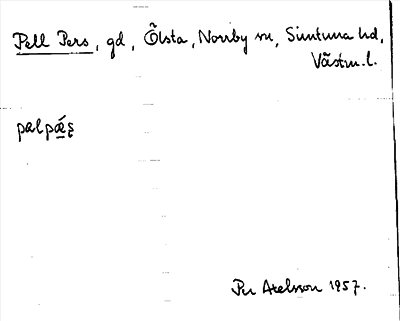 Pell Pers, gd, Ölsta, Norrby sn, Simtuna hd,
Västm. l.
pælpǽ̱ș
Per Axelsson 1957.